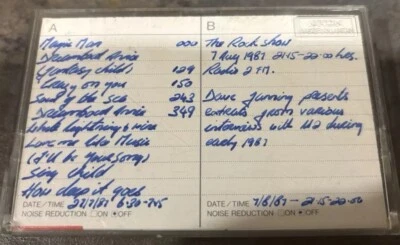 A
Magic Man 000
Dreamboat Annie
(fantasy child) 129
Crazy on you 150
Soul of the Sea 243
Dreamboat Annie 349
White lightning & wine
Love me like Music
(I'll be your song)
Sing Child
How deep it goes
DATE/TIME 22/7/87 6.30-7.15
NOISE REDUCTION □ON ☒OFF
B
The Rock show
7 Aug 1987 21.15-22.00 hrs.
Radio 2 FM.
Dave Fanning presents
extracts from various
interviews with U2 during
early 1987
DATE/TIME 7/8/87 - 21.15-22.00
NOISE REDUCTION □ON ☒OFF